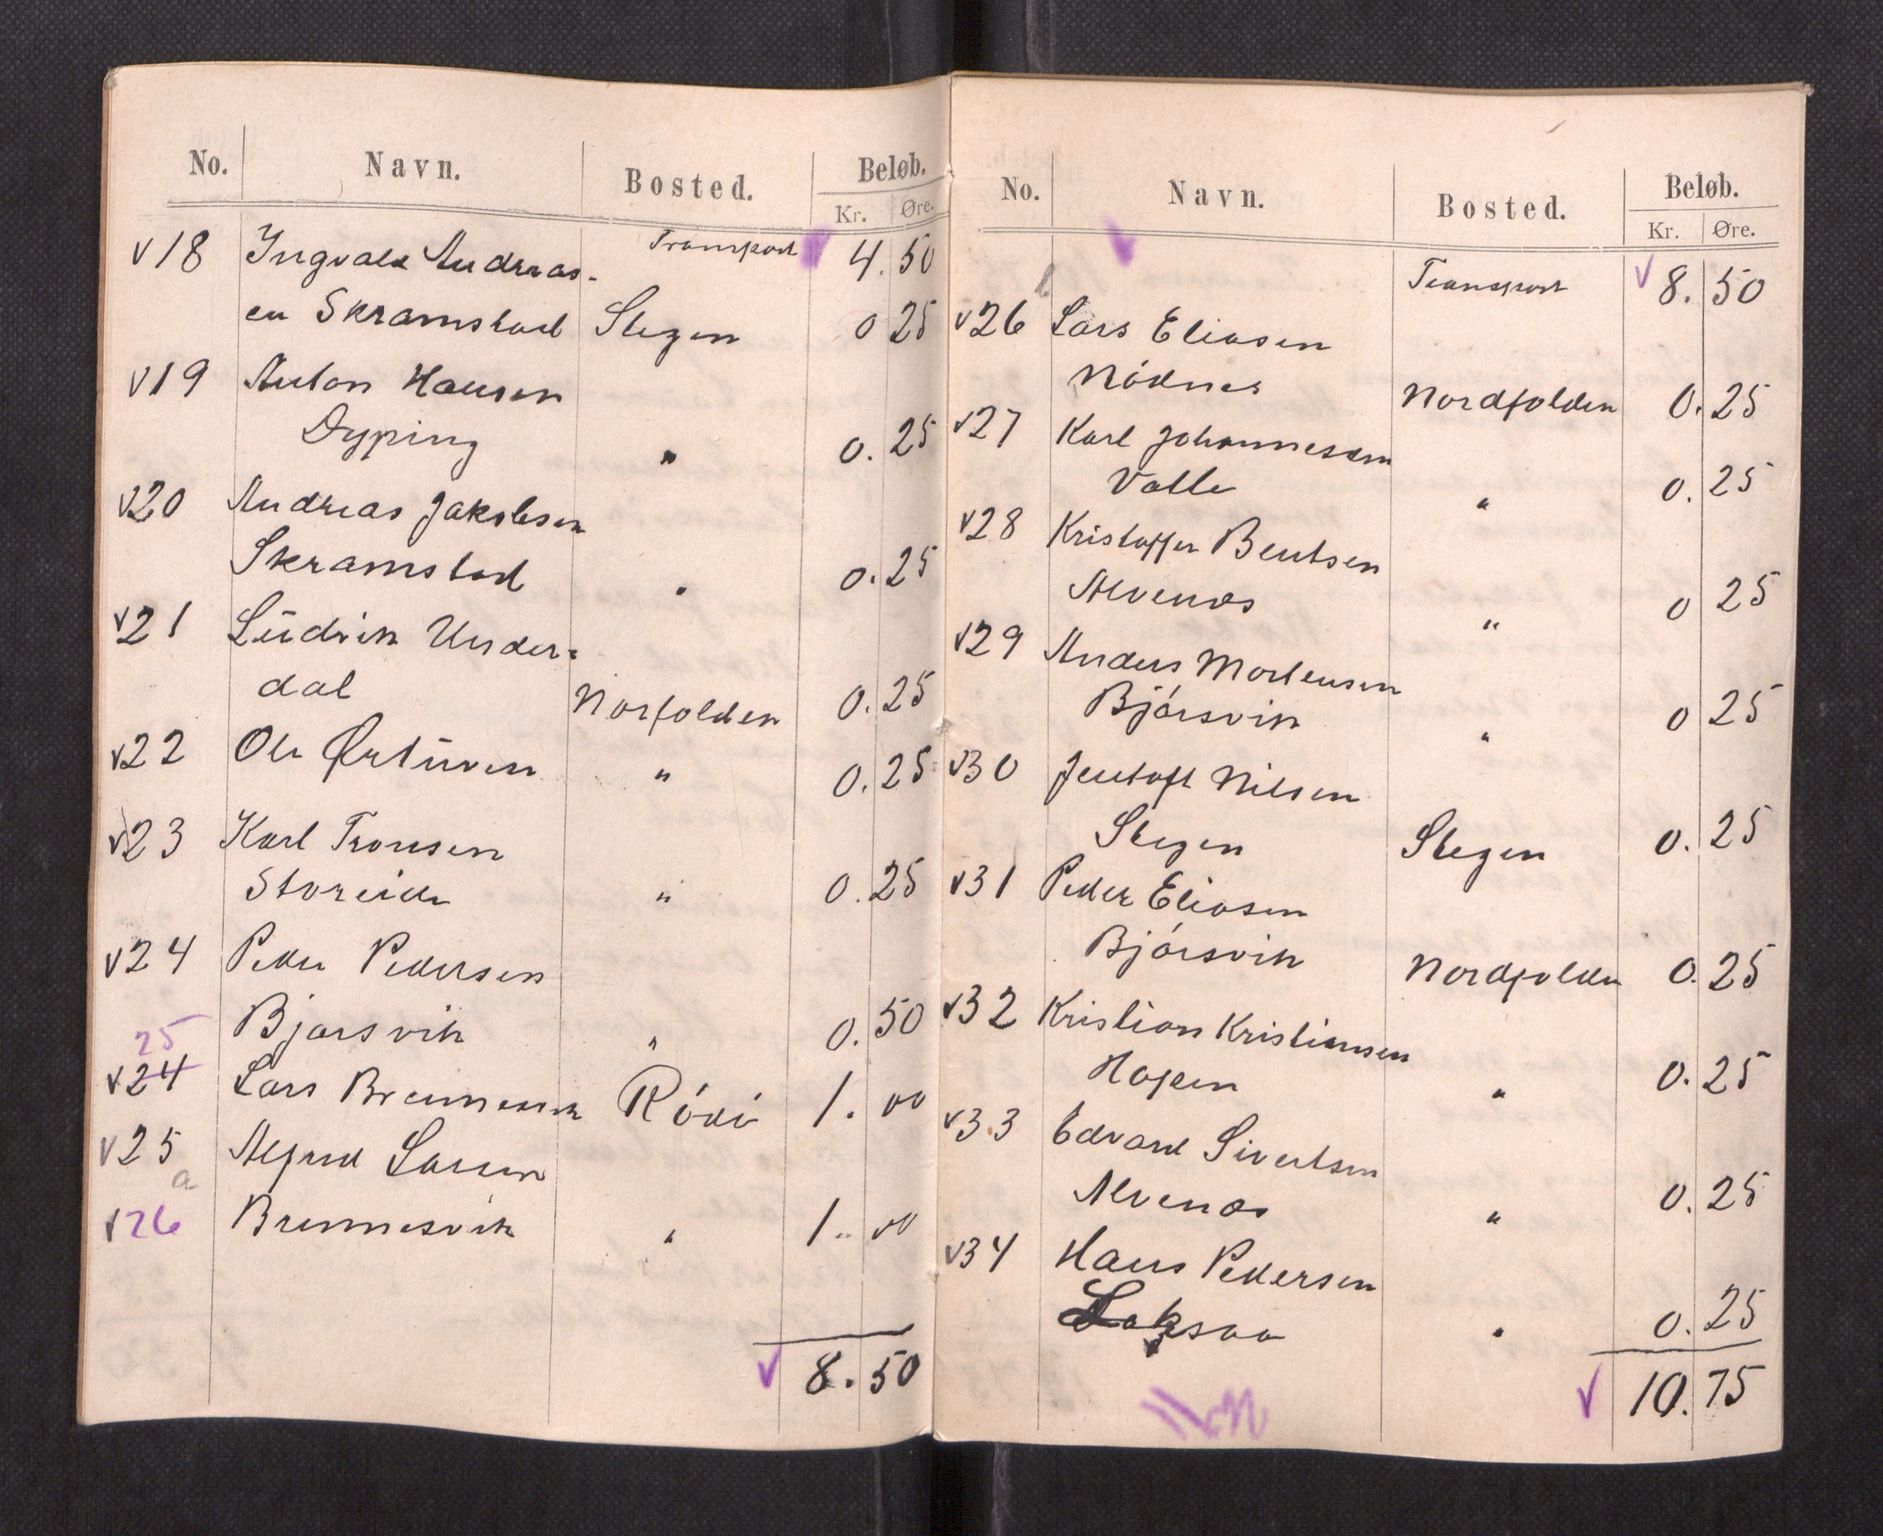 No. Navn. Bosted. Beløb.
Kr. Øre.
Transport 4. 50
v18 Ingvald Andreas-
en Skramstad Stegen 0 25
v19 Anton Hansen
Dyping " 0. 25
v20 Andreas Jakobsen
Skramstad " 0. 25
v21 Ludvik Under-
dal Norfolden 0. 25
v22 Ole Ørtüven " 0. 25
v23 Karl Tronsen
Storeide " 0. 25
v24 Peder Pedersen
Bjørsvik " 0. 50
25
v24 Lars Brennesvik Rödö 1. 00
v25 Alfred Larsen
a
v26 Brennesvik " 1. 00
v 8. 50
No. Navn. Bosted. Beløb.
Kr. Øre.
Transport v 8. 50
v26 Lars Eliasen
Nödnes Nordfolden 0. 25
v27 Karl Johannesen
Valle " 0. 25
v28 Kristoffer Bentsen
Alvenes " 0 25
v29 Anders Mortensen
Bjórsvik " 0 25
v30 Jentoft Nilsen
Stegen Stegen 0. 25
v31 Peder Eliasen
Bjórsvik Nordfolden 0. 25
v32 Kristian Kristiansen
Hopen " 0. 25
v33 Edvard Sivertsen
Alvenes " 0. 25
v34 Hans Pedersen
Laksaa " 0. 25
v 10. 75